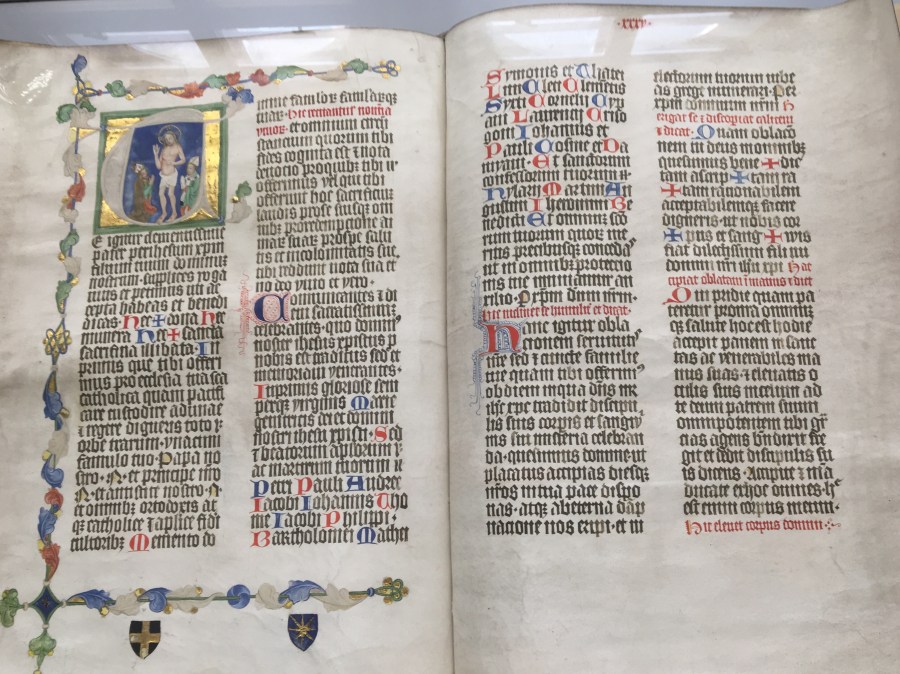 E igitur clementissime
pater per ihesum xpm
filium tuum dominum
nostrum supplices roga
mus et petimus uti ac
cepta habeas et benedi
dicas. Hec + dona hec
munera hec + sancta
sacrificia illibata. In
primis que tibi offeri
mus pro ecclesia tua sca
catholica quam pacifi
care custodire adunare
⁊ regere digneris toto
orbe terrarum. vna cum
famulo tuo. Papa nostro
.N. et principe nostro
.N. et antistite nostro .N.
et omnibus ortodoxis at
qꝫ catholice ⁊ aplice fidei
cultoribꝫ Memento do
mine famlor famlarqꝫ
tuar. hic recitantur nomina
viuor. et omnium circū
stancium quorum tibi
fides cognita est ⁊ nota
deuotio pro quibus tibi
offerimus vel qui tibi
offerunt hoc sacrificiū
laudis pro se suisqꝫ om
nibꝫ pro redemptione ani
mar suar pro spe salu
tis et incolomitatis sue
tibi reddunt uota sua et
no deo viuo et vero.
Communicantes ⁊ di
em sacratissimum
celebrantes. quo dominus
noster ihesus xpistus pro
nobis est traditus sed et
memoriam venerantes.
Inprimis gloriose sem
perqꝫ virginis Marie
genitricis dei et domini
nostri ihesu xpisti. Sed
⁊ beatorum aplorum
ac martirum tuorum
Petri Pauli Andree
Iacobi Iohannis Tho
me Iacobi Philippi.
Bartholomei Mathei
xxxv.
Symonis et Thatei
Lini Cleti Clementis
Syxti Cornelii Cyp
ani Laurencii Criso
goni Iohannis et
Pauli Cosme et Da
miani. Et sanctorum
confessorum tuorum
Hylarii Martini Au
gustini Iheronimi Be
nedicti Et omnium scō
rum tuorum quor me
ritis precibusqꝫ conceda
ut in omnibꝫ protectio
nis tue muniamur au
xilio. P xpm dnm nrm.
hic inclinet se humiliter et dicat.
Hanc igitur obla
cionem seruitutis
nre sed ⁊ cuncte familie
tue quam tibi offerim
ob diem in qua dns nr
ihs xpc tradidit discipu
lis suis corpis et sanguy
nis sui misteria celebran
da. quesumus domine ut
placatus accipias diesqꝫ
nros in tua pace dispo
nas. atqꝫ ab eterna dap
nacione nos eripi. et in
electorum tuorum iube
as grege numerari. Per
xpm dominum nrm h
erigat se ⁊ discoopiat calicem
⁊ dicat. Quam oblacōn
nem tu deus in omnibus
quesumus bene + dic
tam ascrip + tam ra
+ tam rationabilem
acceptabilemqꝫ facere
digneris. ut nobis cor
+ pus et sang + wis
fiat dilectissimi filii tui
domini nri ihu xpi hic
capiat oblatam in manus ⁊ dicat
Qui pridie quam pa
teretur pro nra omniūqꝫ
qꝫ salute hoc est hodie
accepit panem in sanc
tas ac venerabiles ma
nus suas ⁊ eleuatis o
culis suis in celum ad
te deum patrem suum
omnipotentem tibi gra
cias agens bndixit fre
git et dedit discipulis su
is dicens. Accipite ⁊ mā
ducate ex hoc omnes. hoc
est enim corpus meum.
hic eleuet corpus domini